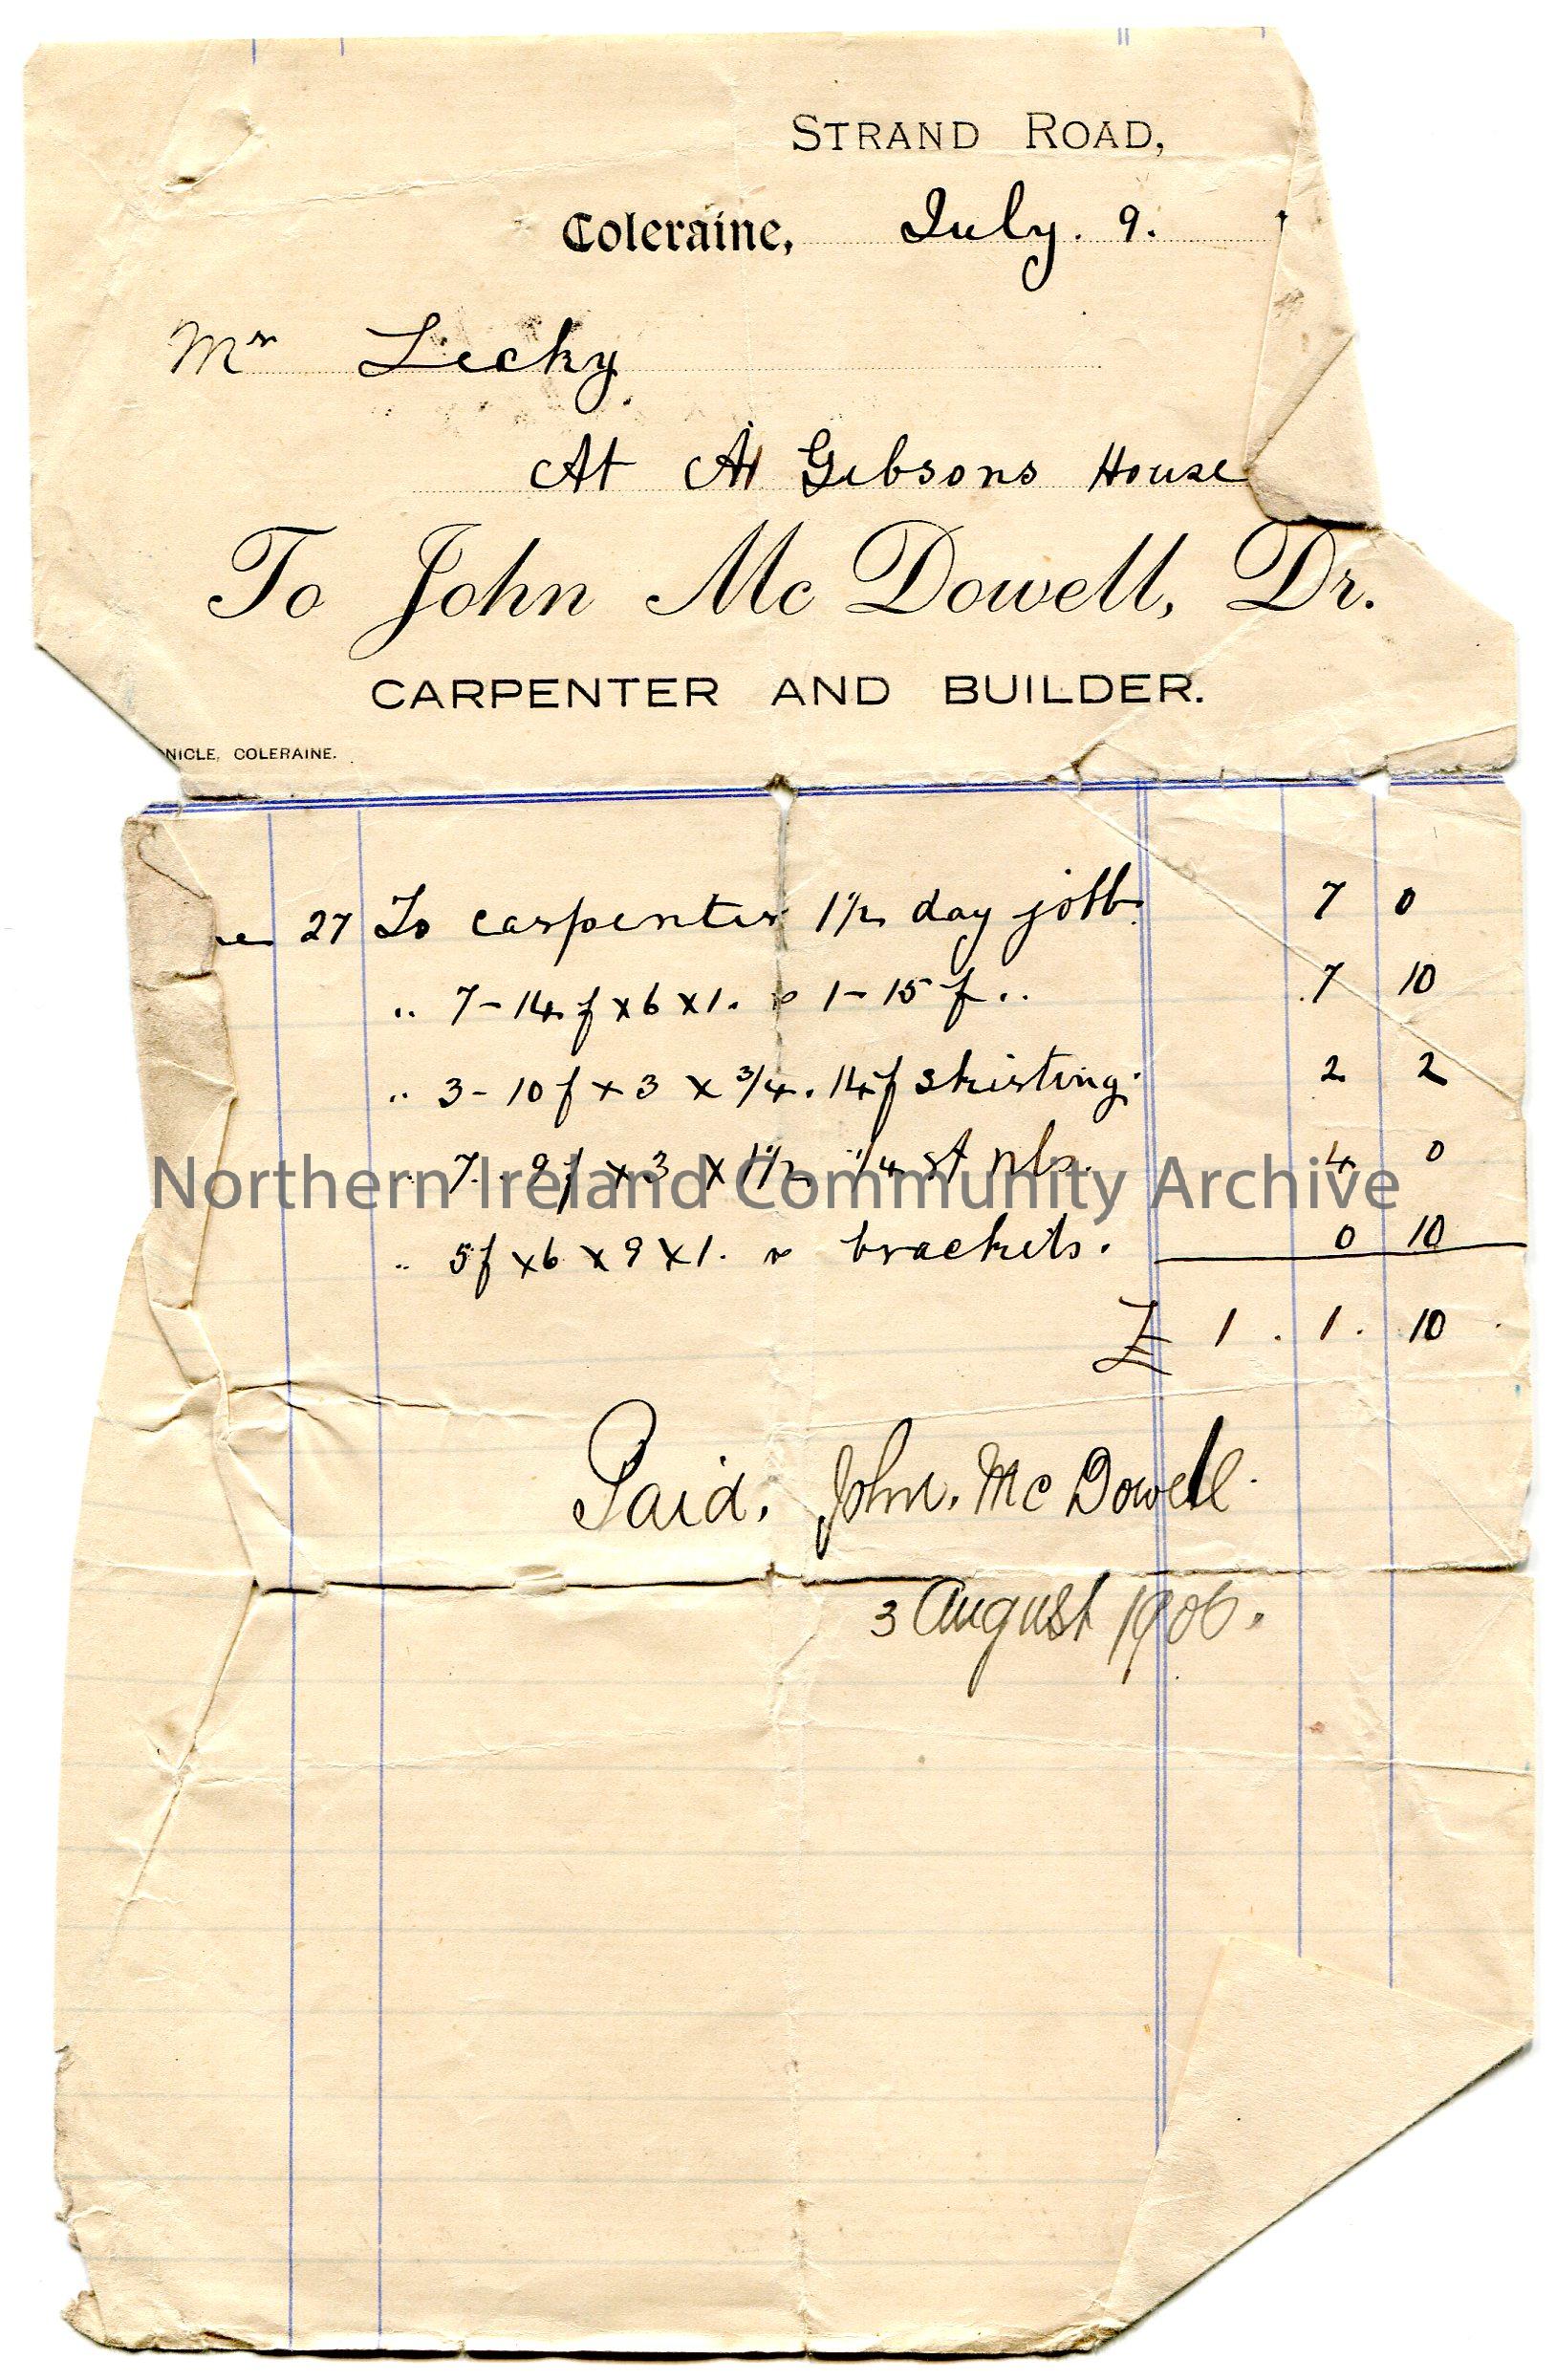 STRAND ROAD,
Coleraine, July. 9.
Mr Lecky
At Gibsons House
To John Mc Dowell, Dr.
CARPENTER AND BUILDER.
NICLE, COLERAINE.
27 To carpenter 1 1/2 day jobb. 7 0
.. 7-14f x 6 x 1. 1-15 f .. 7 10
.. 3-10f x 3 x 3/4. 14f skirting. 2 2
.. 7. 9f x 3 x 1 1/2 1/4 st nls. 4 0
.. 5f x 6 x 9 x 1. brackets. 0 10
£ 1 . 1. 10
Paid. John. Mc Dowell
3 August 1906.
Northern Ireland Community Archive